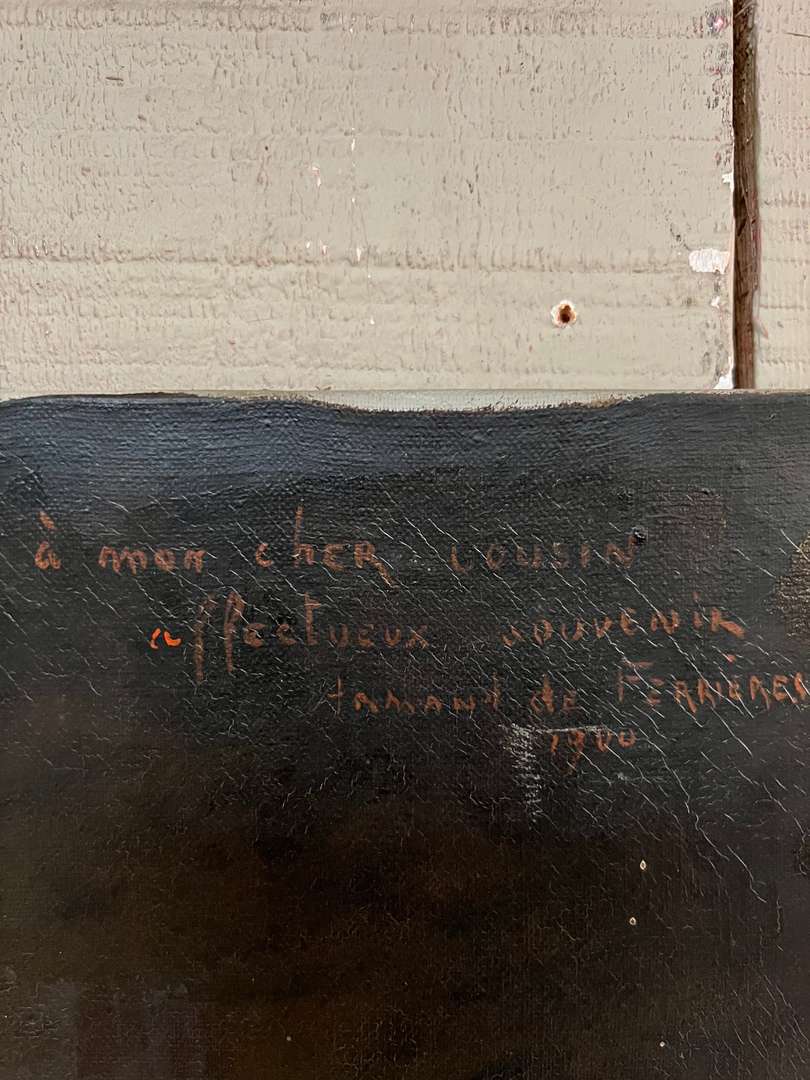 à mon chER COUSIN
affectueux souvenir
de FERRIÈRES
1900